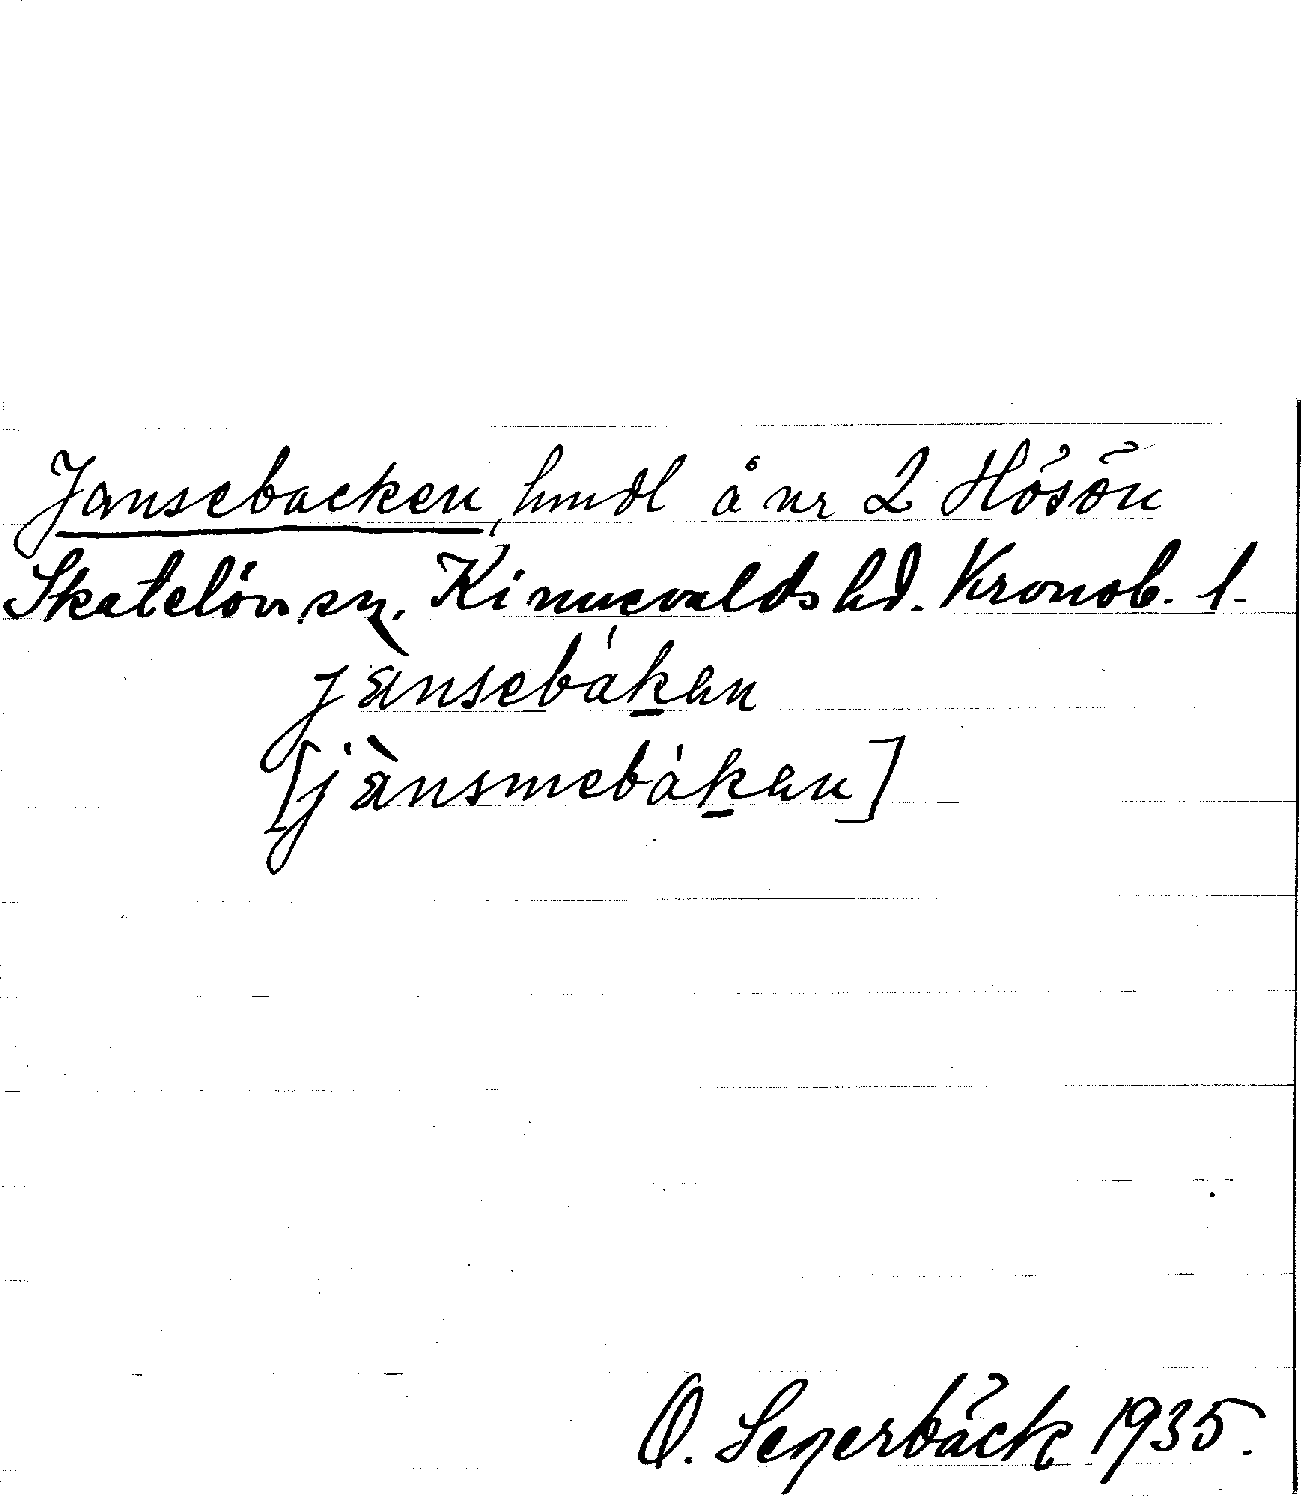 Jansebacken, hmdl å nr 2 Hösön
Skatelövs sn. Kinnevalds hd. Kronob. l.
jànsebákan
[jànsmebákan]
O. Segerbäck 1935.